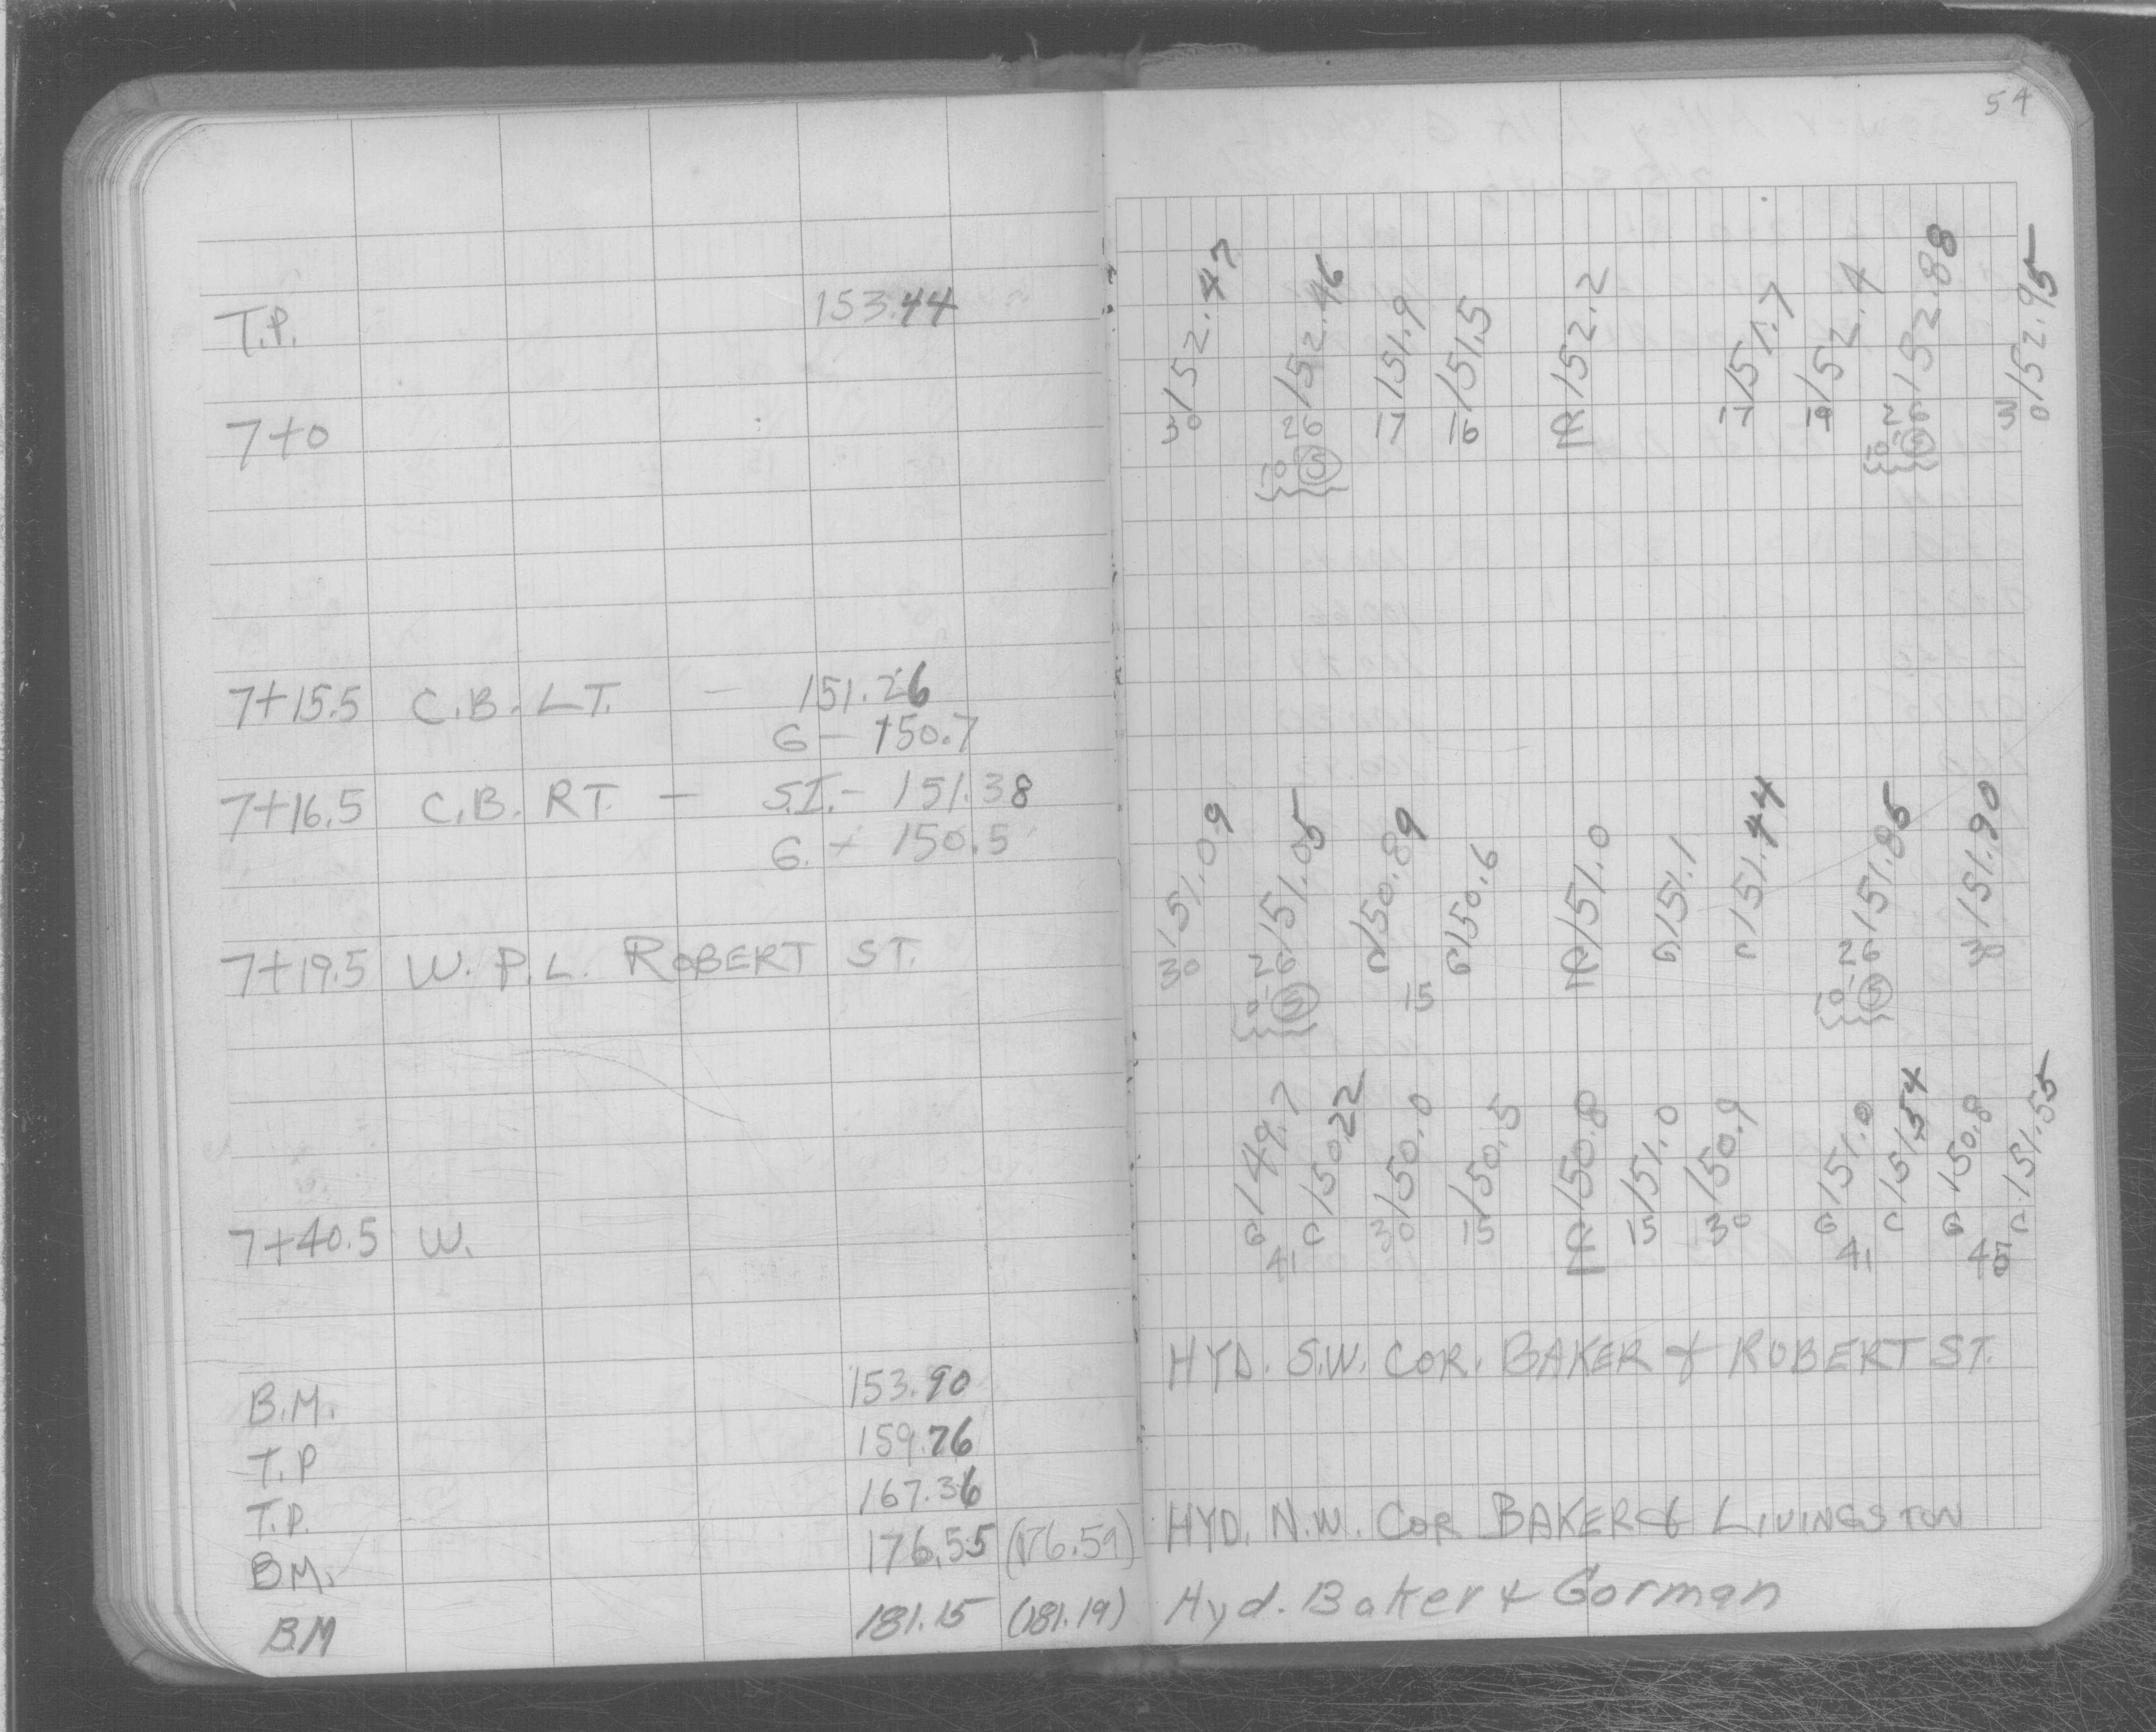 54
T.P. 153.44
152.47 152.46 151.9 151.5 152.2 151.7 152.4 152.88 152.95
7+0 30 26 17 16 ℄ 17 19 26 30
10' ⑤ 10' ⑤
7+15.5 C.B. LT. — 151.26
G — 150.7
7+16.5 C.B. RT. — S.I. — 151.38
G. — 150.5
151.09 151.05 150.89 150.6 151.0 151.1 151.44 151.86 151.90
7+19.5 W. P.L. ROBERT ST. 30 26 C G ℄ G C 26 30
10' ⑤ 15 10' ⑤
149.7 150.22 150.0 150.5 150.8 151.0 150.9 151.0 151.54 150.8 151.55
7+40.5 W. G C 30 15 ℄ 15 30 G C G C
41 41
B.M. 153.90 HYD. S.W. COR. BAKER & ROBERT ST.
T.P 159.76
T.P. 167.36
B.M. 176.55 (176.59) HYD. N.W. COR BAKER & LIVINGSTON
BM 181.15 (181.19) Hyd. Baker & Gorman